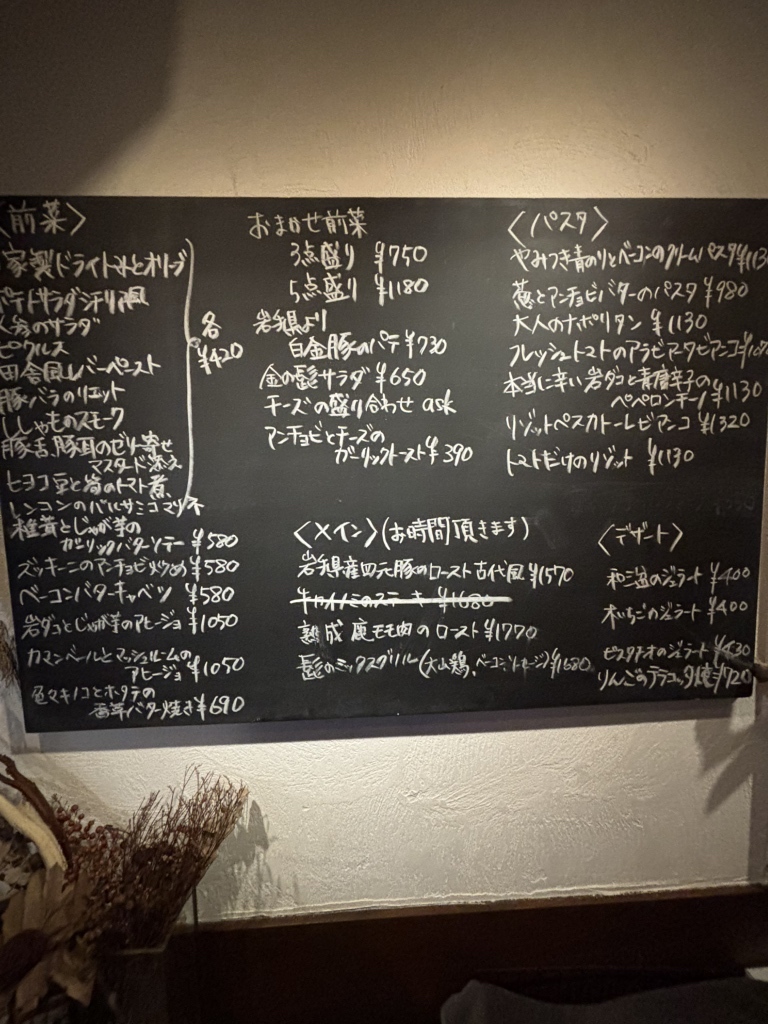 〈前菜〉
家製ドライトマトとオリーブ
ポテトサラダ
のサラダ
ピクルス
田舎風レバーペースト
豚バラのリエット
ししゃものスモーク
豚舌、豚耳のゼリー寄せ
マスタード添え
ヒヨコ豆と筍のトマト煮
レンコンのバルサミコマリネ
各
¥420
椎茸とじゃが芋の
ガーリックバターソテー ¥580
ズッキーニのアンチョビ炒め ¥580
ベーコンバターキャベツ ¥580
岩ダコとじゃが芋のアヒージョ ¥1050
カマンベールとマッシュルームの
アヒージョ ¥1050
色々キノコとホタテの
香草バター焼き ¥690
おまかせ前菜
3点盛り ¥750
5点盛り ¥1180
岩手県より
白金豚のパテ ¥730
金の髭サラダ ¥650
チーズの盛り合わせ ask
アンチョビとチーズの
ガーリックトースト ¥390
〈メイン〉(お時間頂きます)
岩手県産四元豚のロースト古代風 ¥1570
牛カイノミのステーキ ¥1680
熟成 鹿モモ肉のロースト ¥1770
髭のミックスグリル (大山鶏、ベーコン、ソーセージ) ¥1680
〈パスタ〉
やみつき青のりとベーコンのクリームパスタ ¥113
葱とアンチョビバターのパスタ ¥980
大人のナポリタン ¥1130
フレッシュトマトのアラビアータビアンコ ¥107
本当に辛い岩ダコと青唐辛子の
ペペロンチーノ ¥1130
リゾットペスカトーレビアンコ ¥1320
トマトだけのリゾット ¥1130
〈デザート〉
和三盆のジェラート ¥400
木いちごのジェラート ¥400
ピスタチオのジェラート ¥430
りんごのテラコッタ焼き ¥720